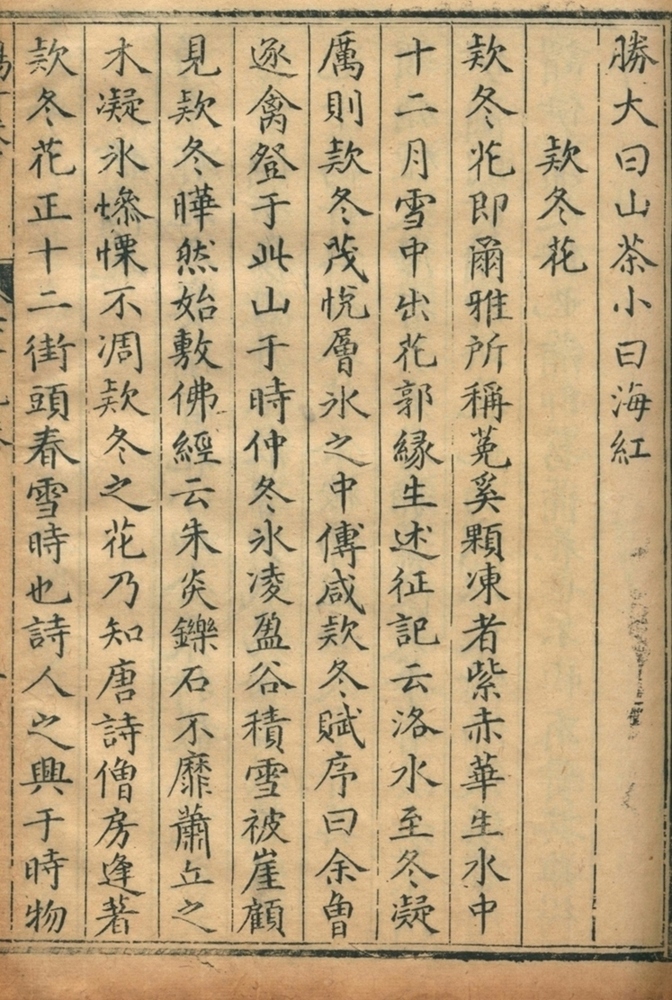 勝大曰山茶小曰海紅
款冬花
款冬花即爾雅所稱菟奚顆凍者紫赤華生水中
十二月雪中出花郭緣生述征記云洛水至冬凝
厲則款冬茂悅層氷之中傅咸款冬賦序曰余曾
逐禽登于此山于時仲冬氷凌盈谷積雪被崖顧
見款冬曄然始敷佛經云朱炎鑠石不靡蕭丘之
木凝氷慘慄不凋款冬之花乃知唐詩僧房逢著
款冬花正十二街頭春雪時也詩人之興于時物